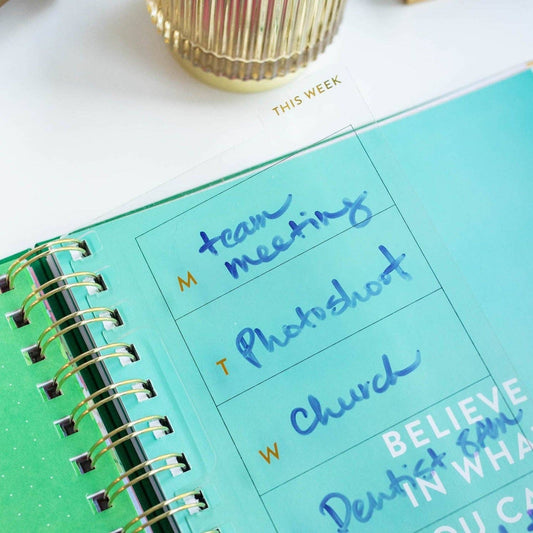 THIS WEEK
M
team
meeting
T
Photoshoot
W
Church
Dentist 8AM
BELIEVE
IN WHA
OU CA